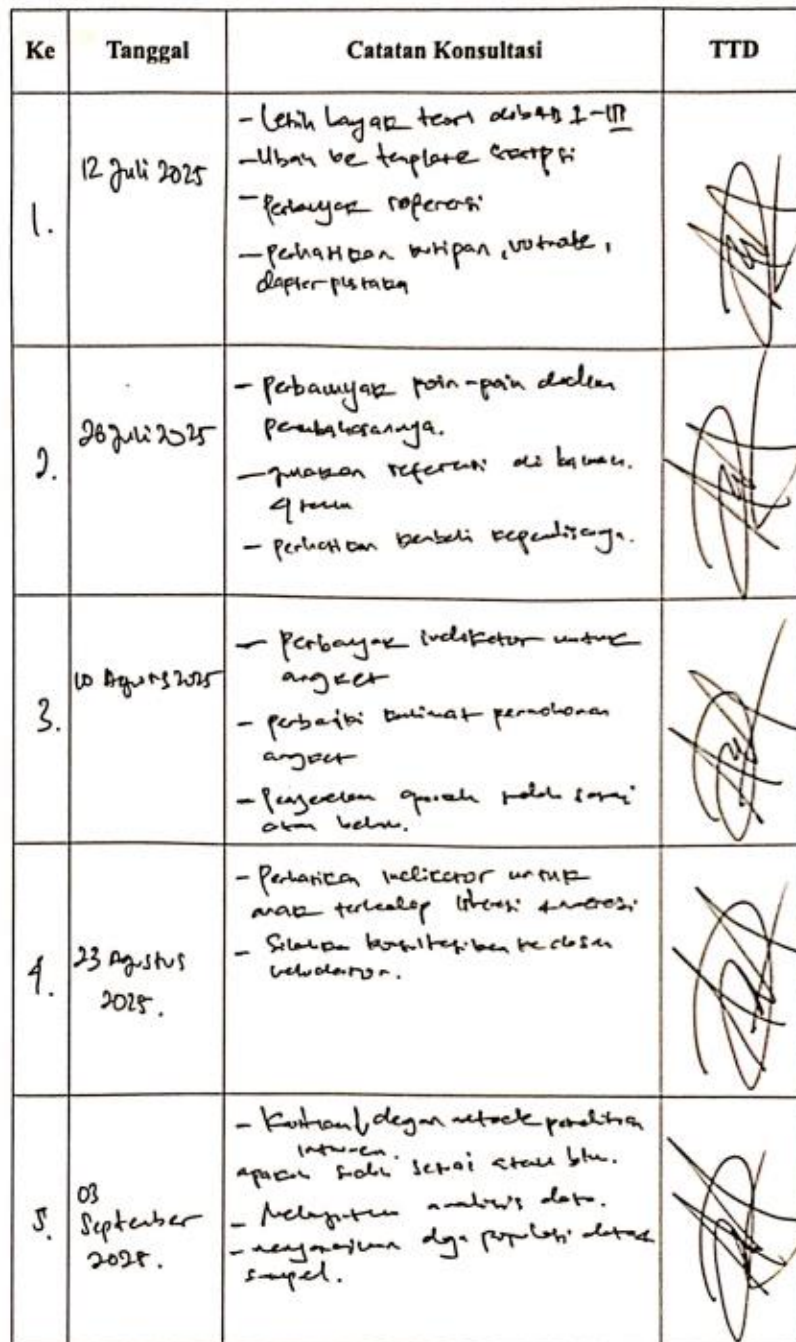 Ke Tanggal Catatan Konsultasi TTD
1.
12 Juli 2025
- Lebih banyak teori dibab I-III
- Ubah ke template skripsi
- Perbanyak referensi
- Perhatikan kutipan,
daftar pustaka
2.
26 Juli 2025
- Perbanyak poin-poin dalam
pembahasannya.
- gunakan referensi di bawah
tahun
- Perhatikan kembali kepenulisannya.
3.
10 Agustus 2025
- Perbanyak indikator untuk
angket
- perbaiki kalimat permohonan
angket
- apakah sudah sesuai
atau belum.
4.
23 Agustus
2025.
- Perhatikan indikator untuk
anak terhadap literasi numerasi
- Silahkan konsultasikan ke dosen
validator.
5.
03
September
- dengan metode penelitian
apakah sudah sesuai atau blm.
- analisis data.
- populasi
sampel.